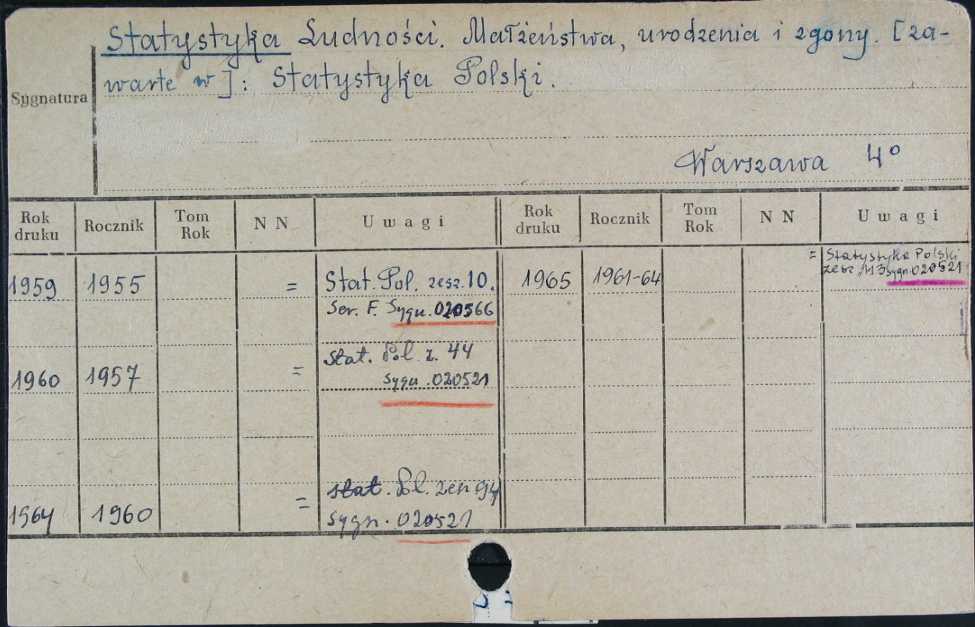 Statystyka Ludności. Małżeństwa, urodzenia i zgony. [za-
warte w]: Statystyka Polski.
Sygnatura
Warszawa 4°
Rok druku Rocznik Tom Rok N N Uwagi Rok druku Rocznik Tom Rok N N Uwagi
1959 1955 = Stat. Pol. zesz. 10.
Ser. F. Sygn. 020566
1960 1957 = Stat. Pol. z. 44
Sygn. 020521
1964 1960 = stat. Pol. zesz 94
sygn. 020521
1965 1961-64 = Statystyka Polski
zesz. 113 sygn. 020521